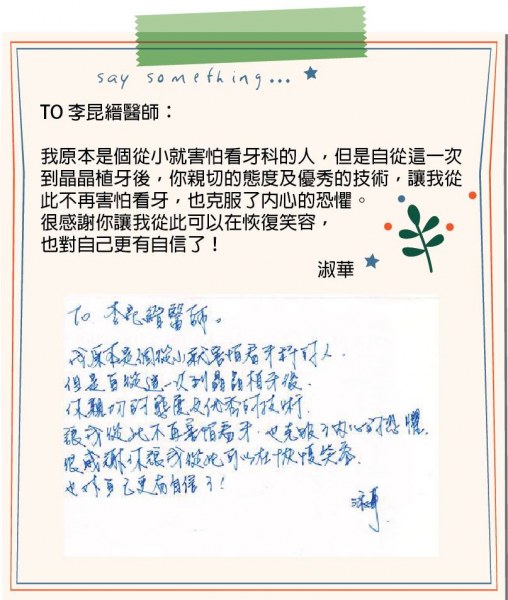 say something...
TO 李昆縉醫師：
我原本是個從小就害怕看牙科的人，但是自從這一次
到晶晶植牙後，你親切的態度及優秀的技術，讓我從
此不再害怕看牙，也克服了內心的恐懼。
很感謝你讓我從此可以在恢復笑容，
也對自己更有自信了！
淑華
To 李昆縉醫師。
我原本是個從小就害怕看牙科的人.
但是自從這一次到晶晶植牙後.
你親切的態度及優秀的技術.
讓我從此不再害怕看牙.也克服了內心的恐懼.
很感謝你讓我從此可以在恢復笑容.
也對自己更有自信了!
淑華